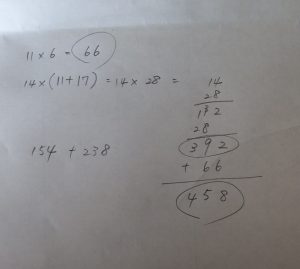 11 × 6 = 66
14 × (11+17) = 14 × 28 =
14
28
132
28
392
+ 66
458
154 + 238